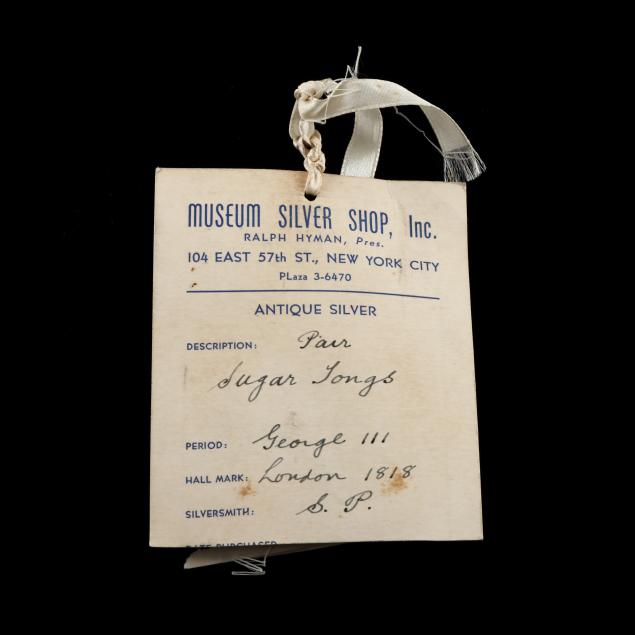 MUSEUM SILVER SHOP, Inc.
RALPH HYMAN, Pres.
104 EAST 57th ST., NEW YORK CITY
PLaza 3-6470
ANTIQUE SILVER
DESCRIPTION: Pair
Sugar Tongs
PERIOD: George III
HALL MARK: London 1818
SILVERSMITH: S. P.
DATE PURCHASED